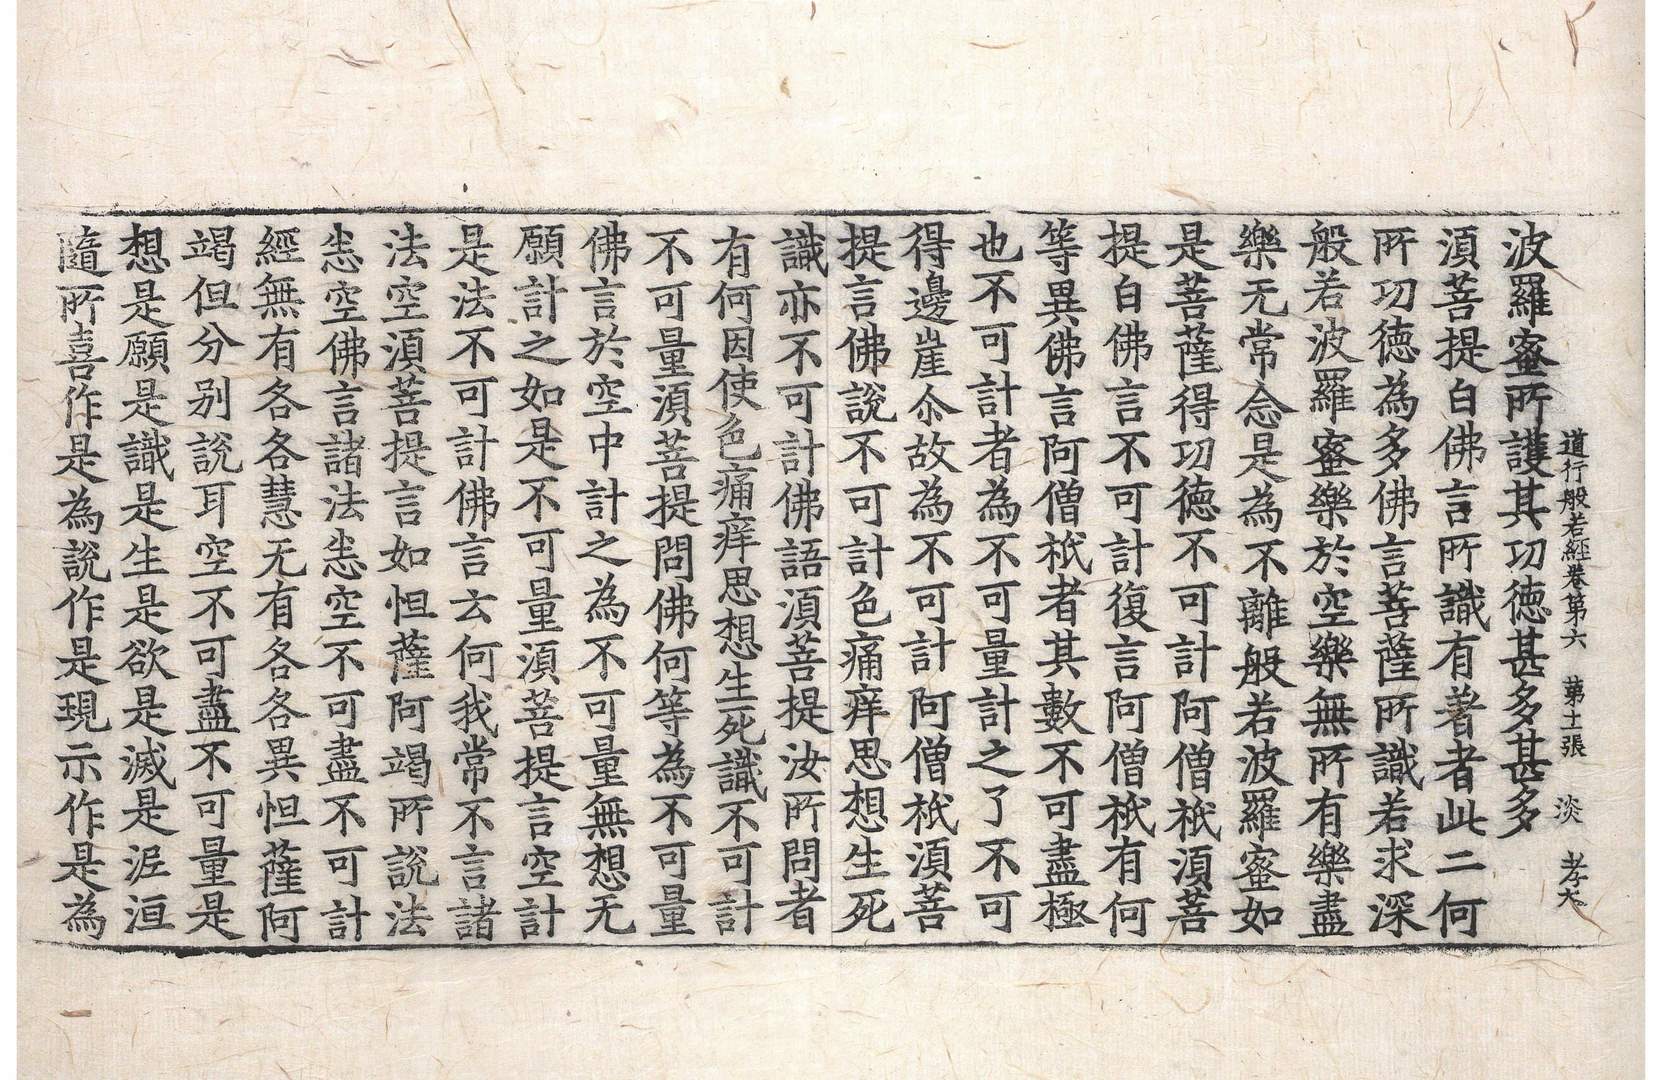 道行般若經卷第六　第十一張　淡　孝大
波羅蜜所護其功德甚多甚多
湏菩提白佛言所識有著者此二何
所功德為多佛言菩薩所識若求深
般若波羅蜜樂於空樂無所有樂盡
樂无常念是為不離般若波羅蜜如
是菩薩得功德不可計阿僧祇湏菩
提白佛言不可計復言阿僧祇有何
等異佛言阿僧祇者其數不可盡極
也不可計者為不可量計之了不可
得邊崖尒故為不可計阿僧祇湏菩
提言佛說不可計色痛痒思想生死
識亦不可計佛語湏菩提汝所問者
有何因使色痛痒思想生死識不可計
不可量湏菩提問佛何等為不可量
佛言於空中計之為不可量無想无
願計之如是不可量湏菩提言空計
是法不可計佛言云何我常不言諸
法空湏菩提言如怛薩阿竭所說法
悉空佛言諸法悉空不可盡不可計
經無有各各慧无有各各異怛薩阿
竭但分別說耳空不可盡不可量是
想是願是識是生是欲是滅是泥洹
隨所喜作是為說作是現示作是為